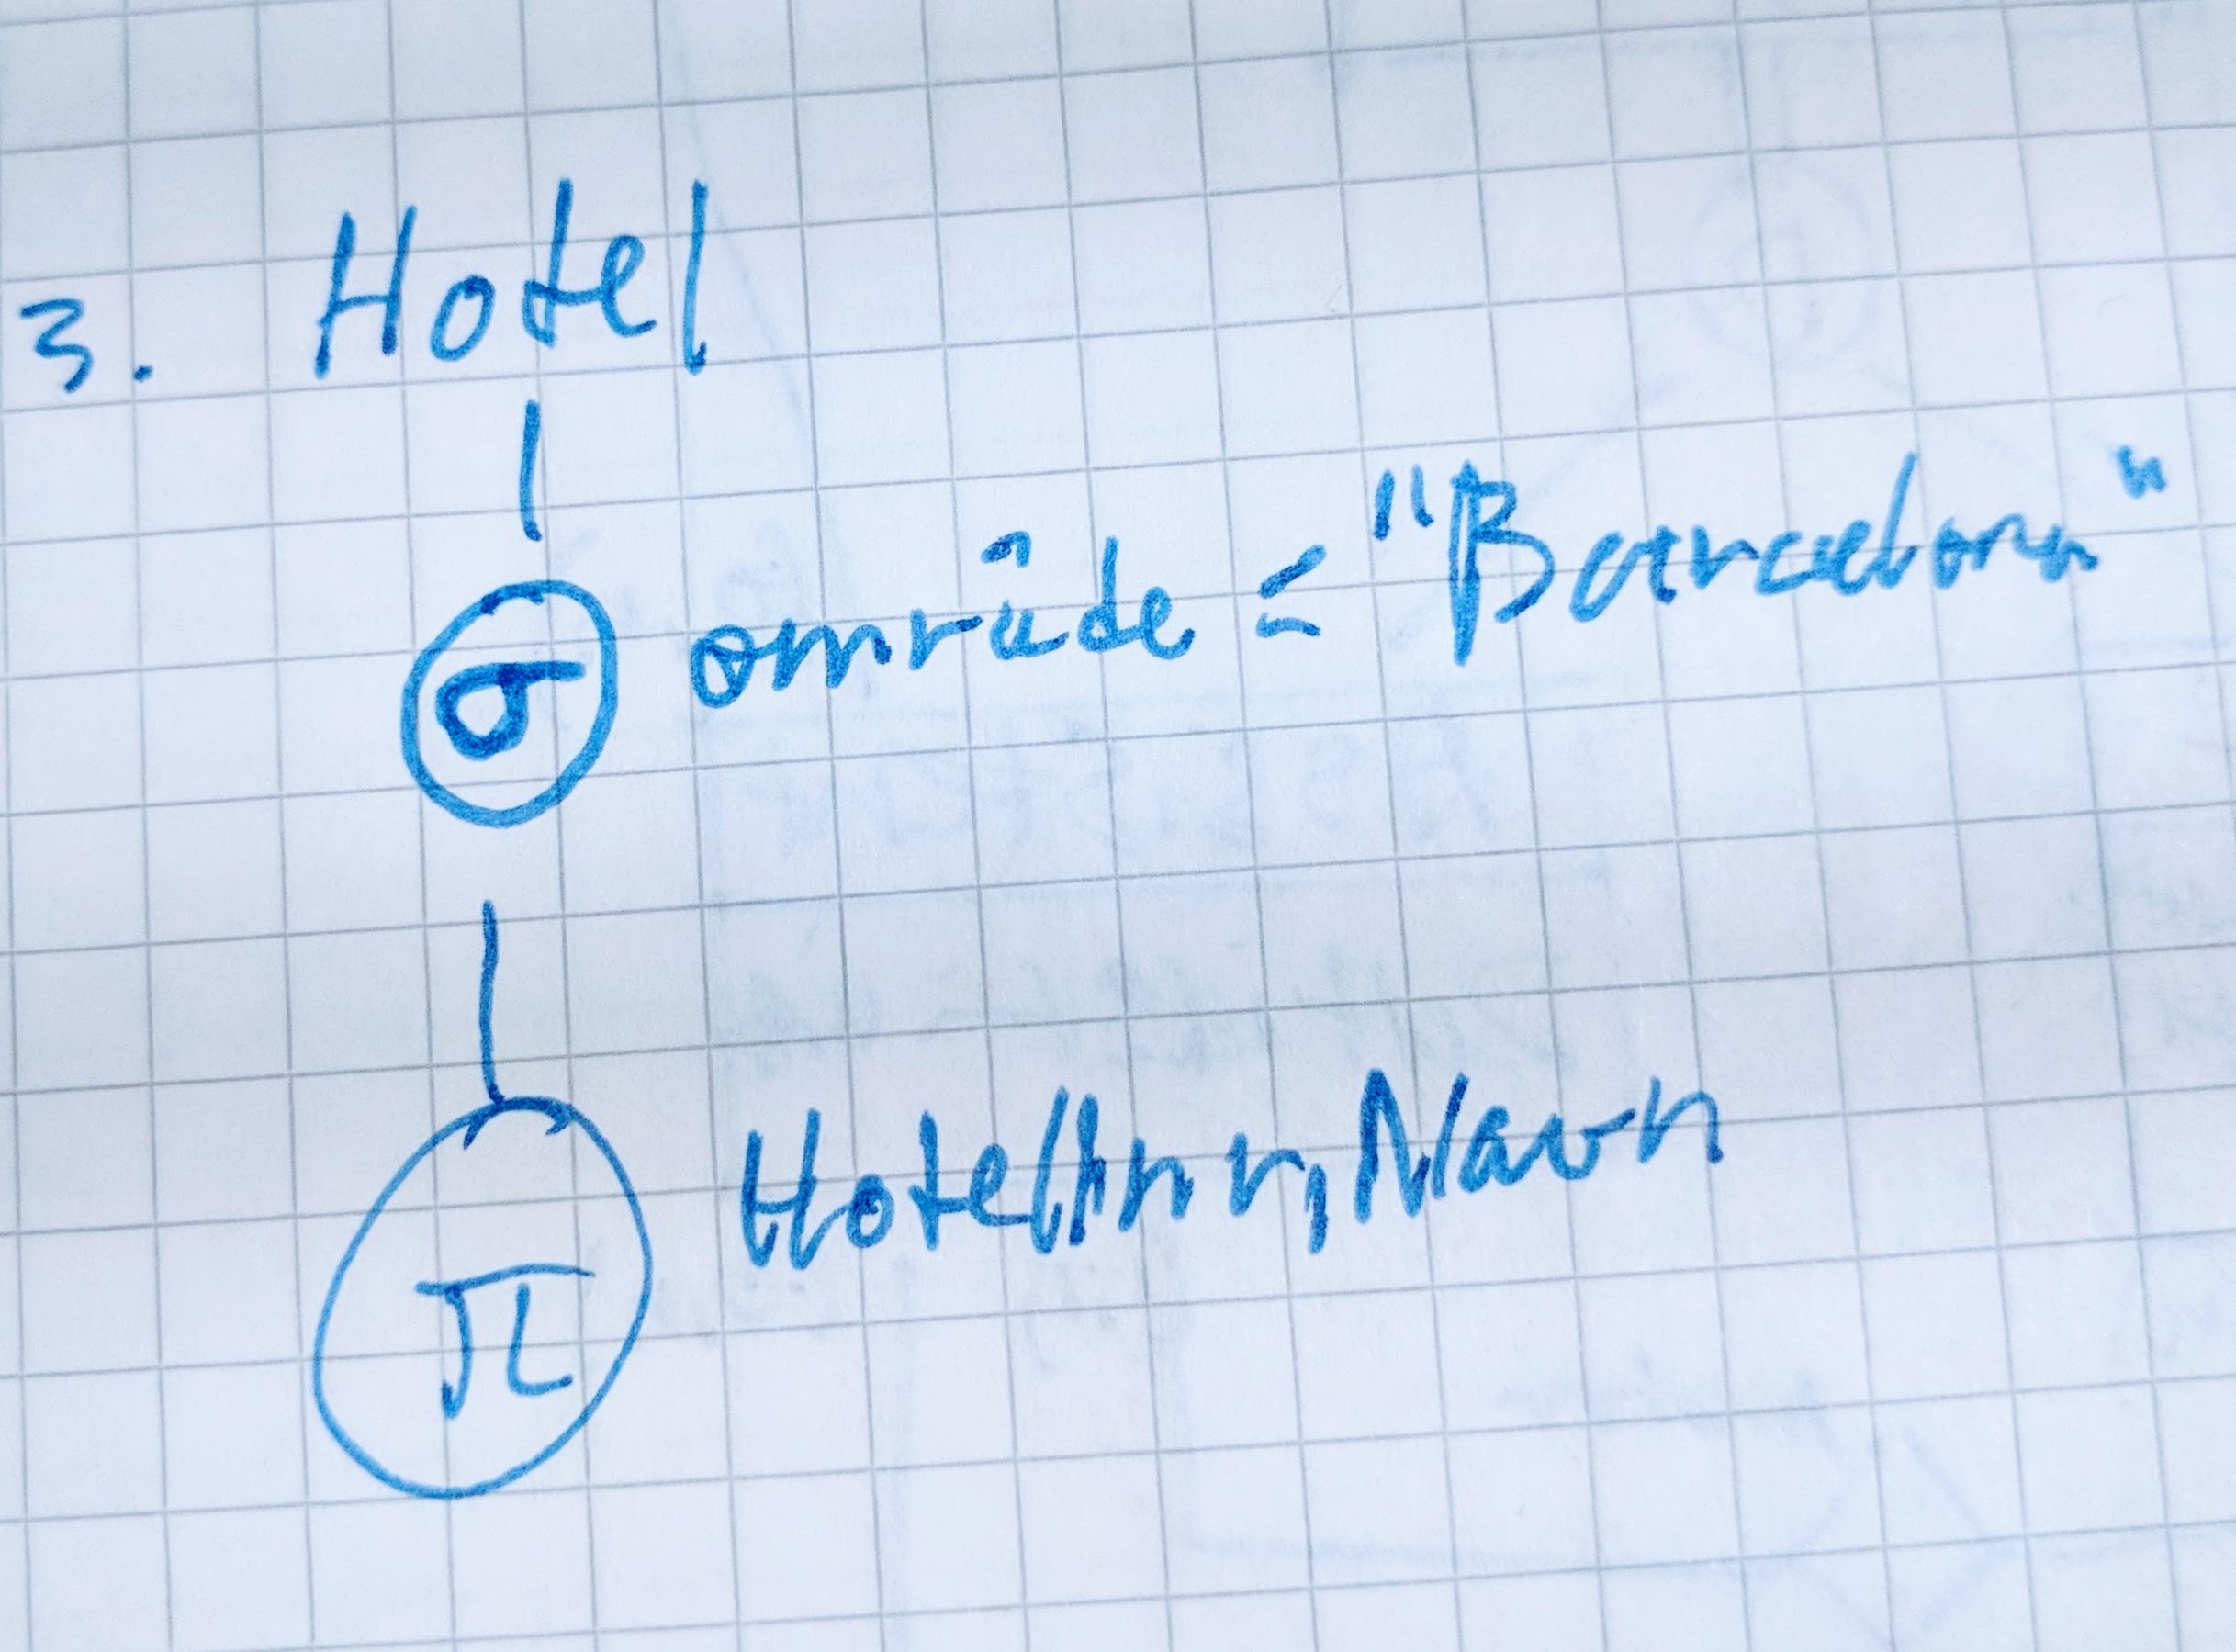 3. Hotel
σ område = "Barcelona"
π Hotellnr, Navn